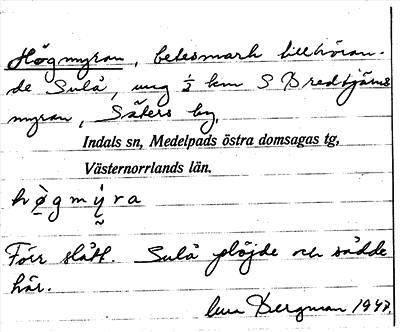 Högmyran, betesmark tillhöran-
de Sulå, ung ½ km S Bredtjärns
myran, Säters by,
Indals sn, Medelpads östra domsagas tg,
Västernorrlands län.
hø̀gmýra
Förr slått. Sulå plöjde och sådde
här.
Bergman 1947.